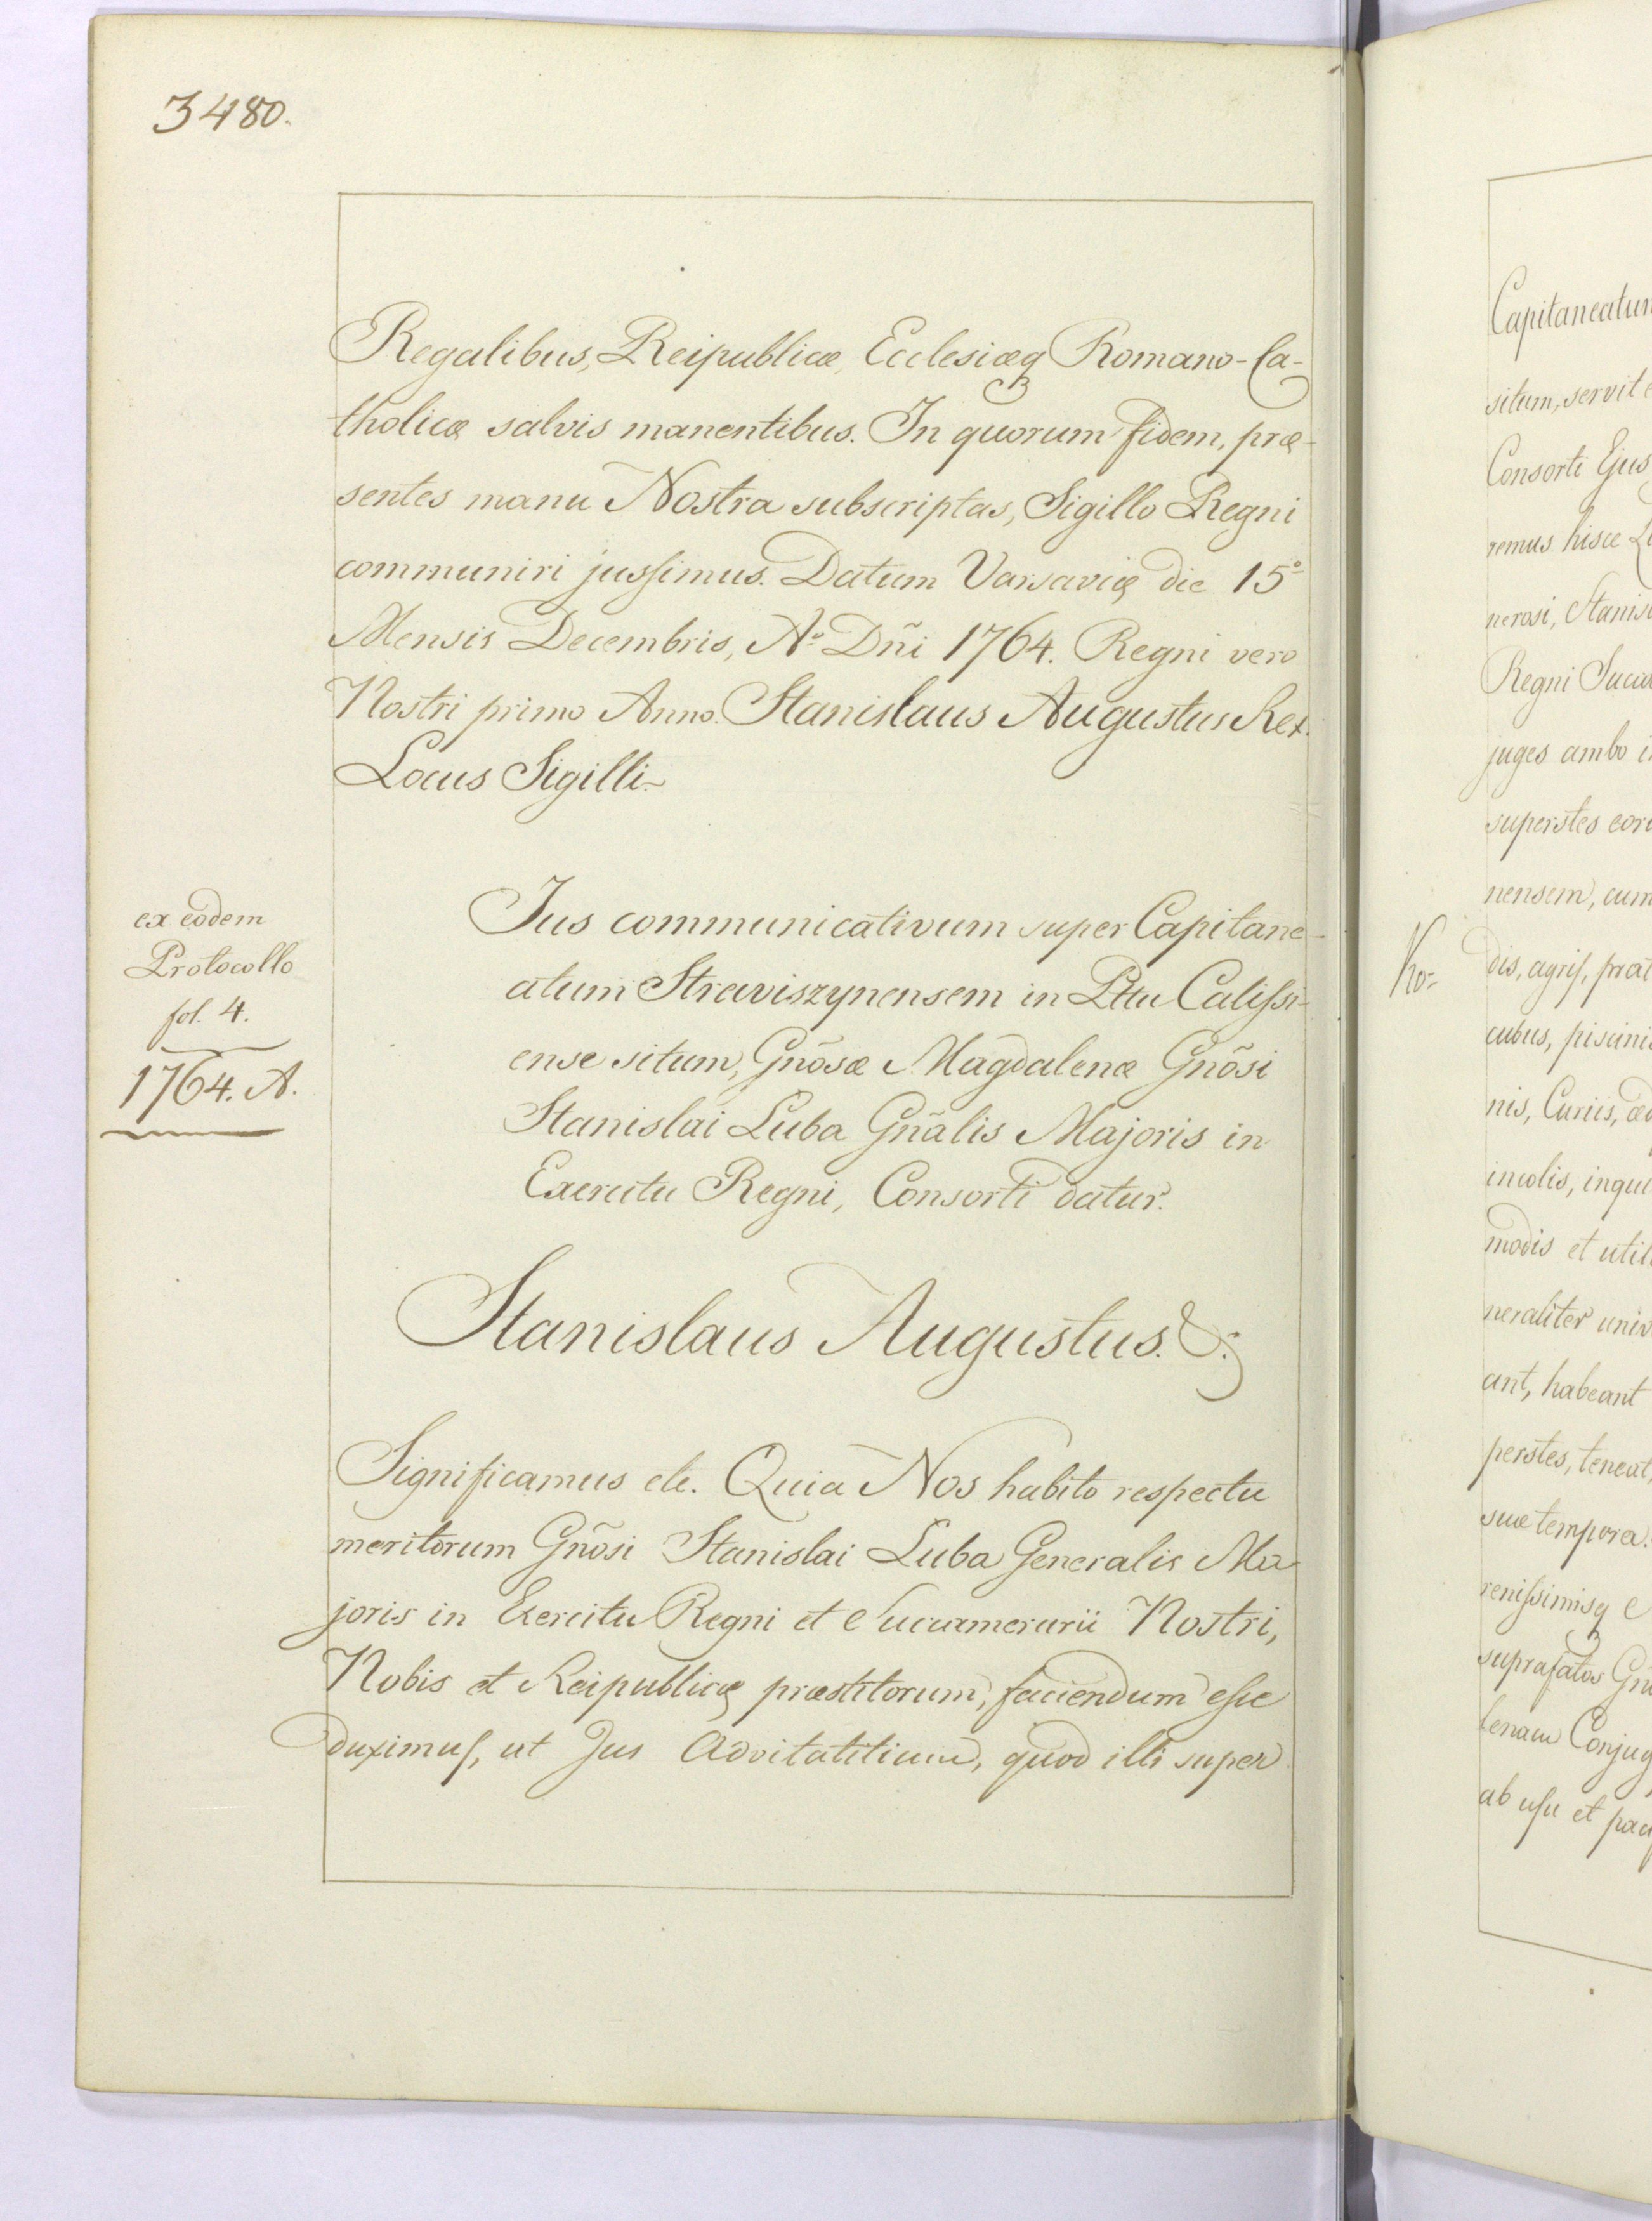 3480.
Regalibus, Reipublicæ, Ecclesiæq Romano-Ca-
tholicæ salvis manentibus. In quorum fidem, præ-
sentes manu Nostra subscriptas, Sigillo Regni
communiri juſsimus. Datum Varsavię die 15º
Mensis Decembris, Aº Dñi 1764. Regni vero
Nostri primo Anno. Stanislaus Augustus Rex.
Locus Sigilli
ex eodem
Protocollo
fol. 4.
1764. A.
Jus communicativum super Capitane-
atum Straviszynensem in Pttu Caliſsi-
ense situm, Gnõsæ Magdalenæ Gnõsi
Stanislai Luba Gnãlis Majoris in
Exercitu Regni, Consorti datur.
Stanislaus Augustus. &.
Significamus etc. Quia Nos habito respectu
meritorum Gnõsi Stanislai Luba Generalis Ma
joris in Exercitu Regni et Succamerarii Nostri,
Nobis et Reipublicę præstitorum, faciendum eſse
duximuſ, ut Jus Advitalitium, quod illi super
Capitaneatum
situm, servit
Consorti Ejus
remus hisce
nerosi, Stanis
Regni Succa
juges ambo i
superstes eor
nensem, cum
Ko-
dis, agriſ, prat
cubus, piscini
nis, Curiis, æd
incolis, inqui
modis et utili
neraliter univ
ant, habeant
perstes, teneat,
suæ tempora.
reniſsimisq
suprafatos Gn
lenam Conjug
ab uſu et pac